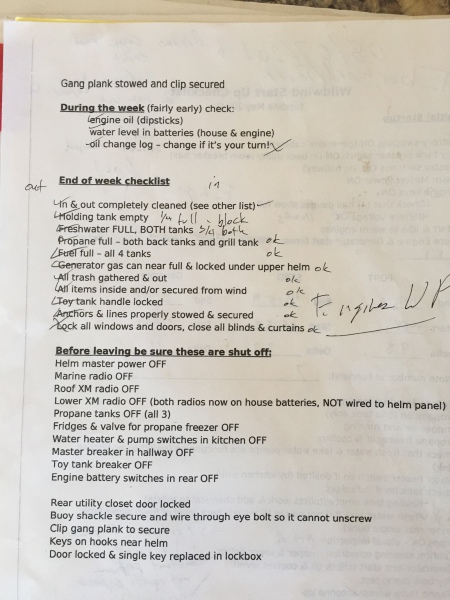 Gang plank stowed and clip secured
During the week (fairly early) check:
engine oil (dipsticks)
water level in batteries (house & engine)
-oil change log – change if it's your turn!
out End of week checklist in
In & out completely cleaned (see other list)
Holding tank empty 1/4 full - black
Freshwater FULL, BOTH tanks 3/4 both
Propane full – both back tanks and grill tank ok
Fuel full – all 4 tanks ok
Generator gas can near full & locked under upper helm ok
All trash gathered & out ok
All items inside and/or secured from wind ok
Toy tank handle locked ok
Anchors & lines properly stowed & secured ok
Lock all windows and doors, close all blinds & curtains ok
Before leaving be sure these are shut off:
Helm master power OFF
Marine radio OFF
Roof XM radio OFF
Lower XM radio OFF (both radios now on house batteries, NOT wired to helm panel)
Propane tanks OFF (all 3)
Fridges & valve for propane freezer OFF
Water heater & pump switches in kitchen OFF
Master breaker in hallway OFF
Toy tank breaker OFF
Engine battery switches in rear OFF
Rear utility closet door locked
Buoy shackle secure and wire through eye bolt so it cannot unscrew
Clip gang plank to secure
Keys on hooks near helm
Door locked & single key replaced in lockbox